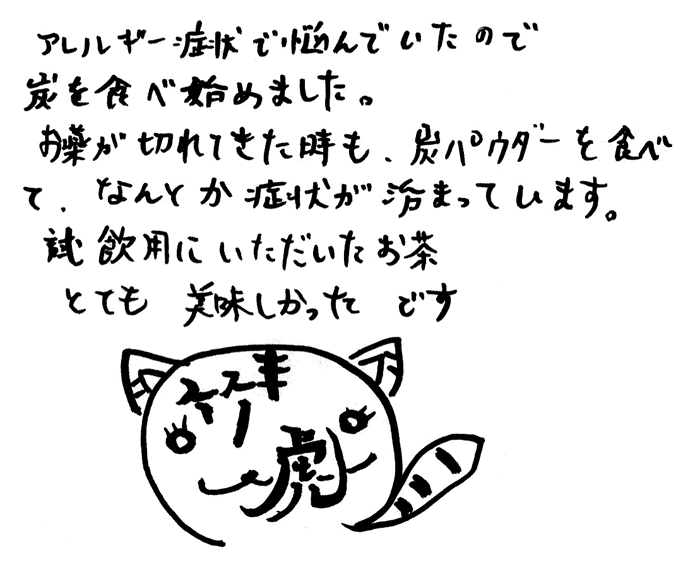 アレルギー症状で悩んでいたので
炭を食べ始めました。
お薬が切れてきた時も、炭パウダーを食べ
て、なんとか症状が治まっています。
試飲用にいただいたお茶
とても 美味しかった です
竹
虎